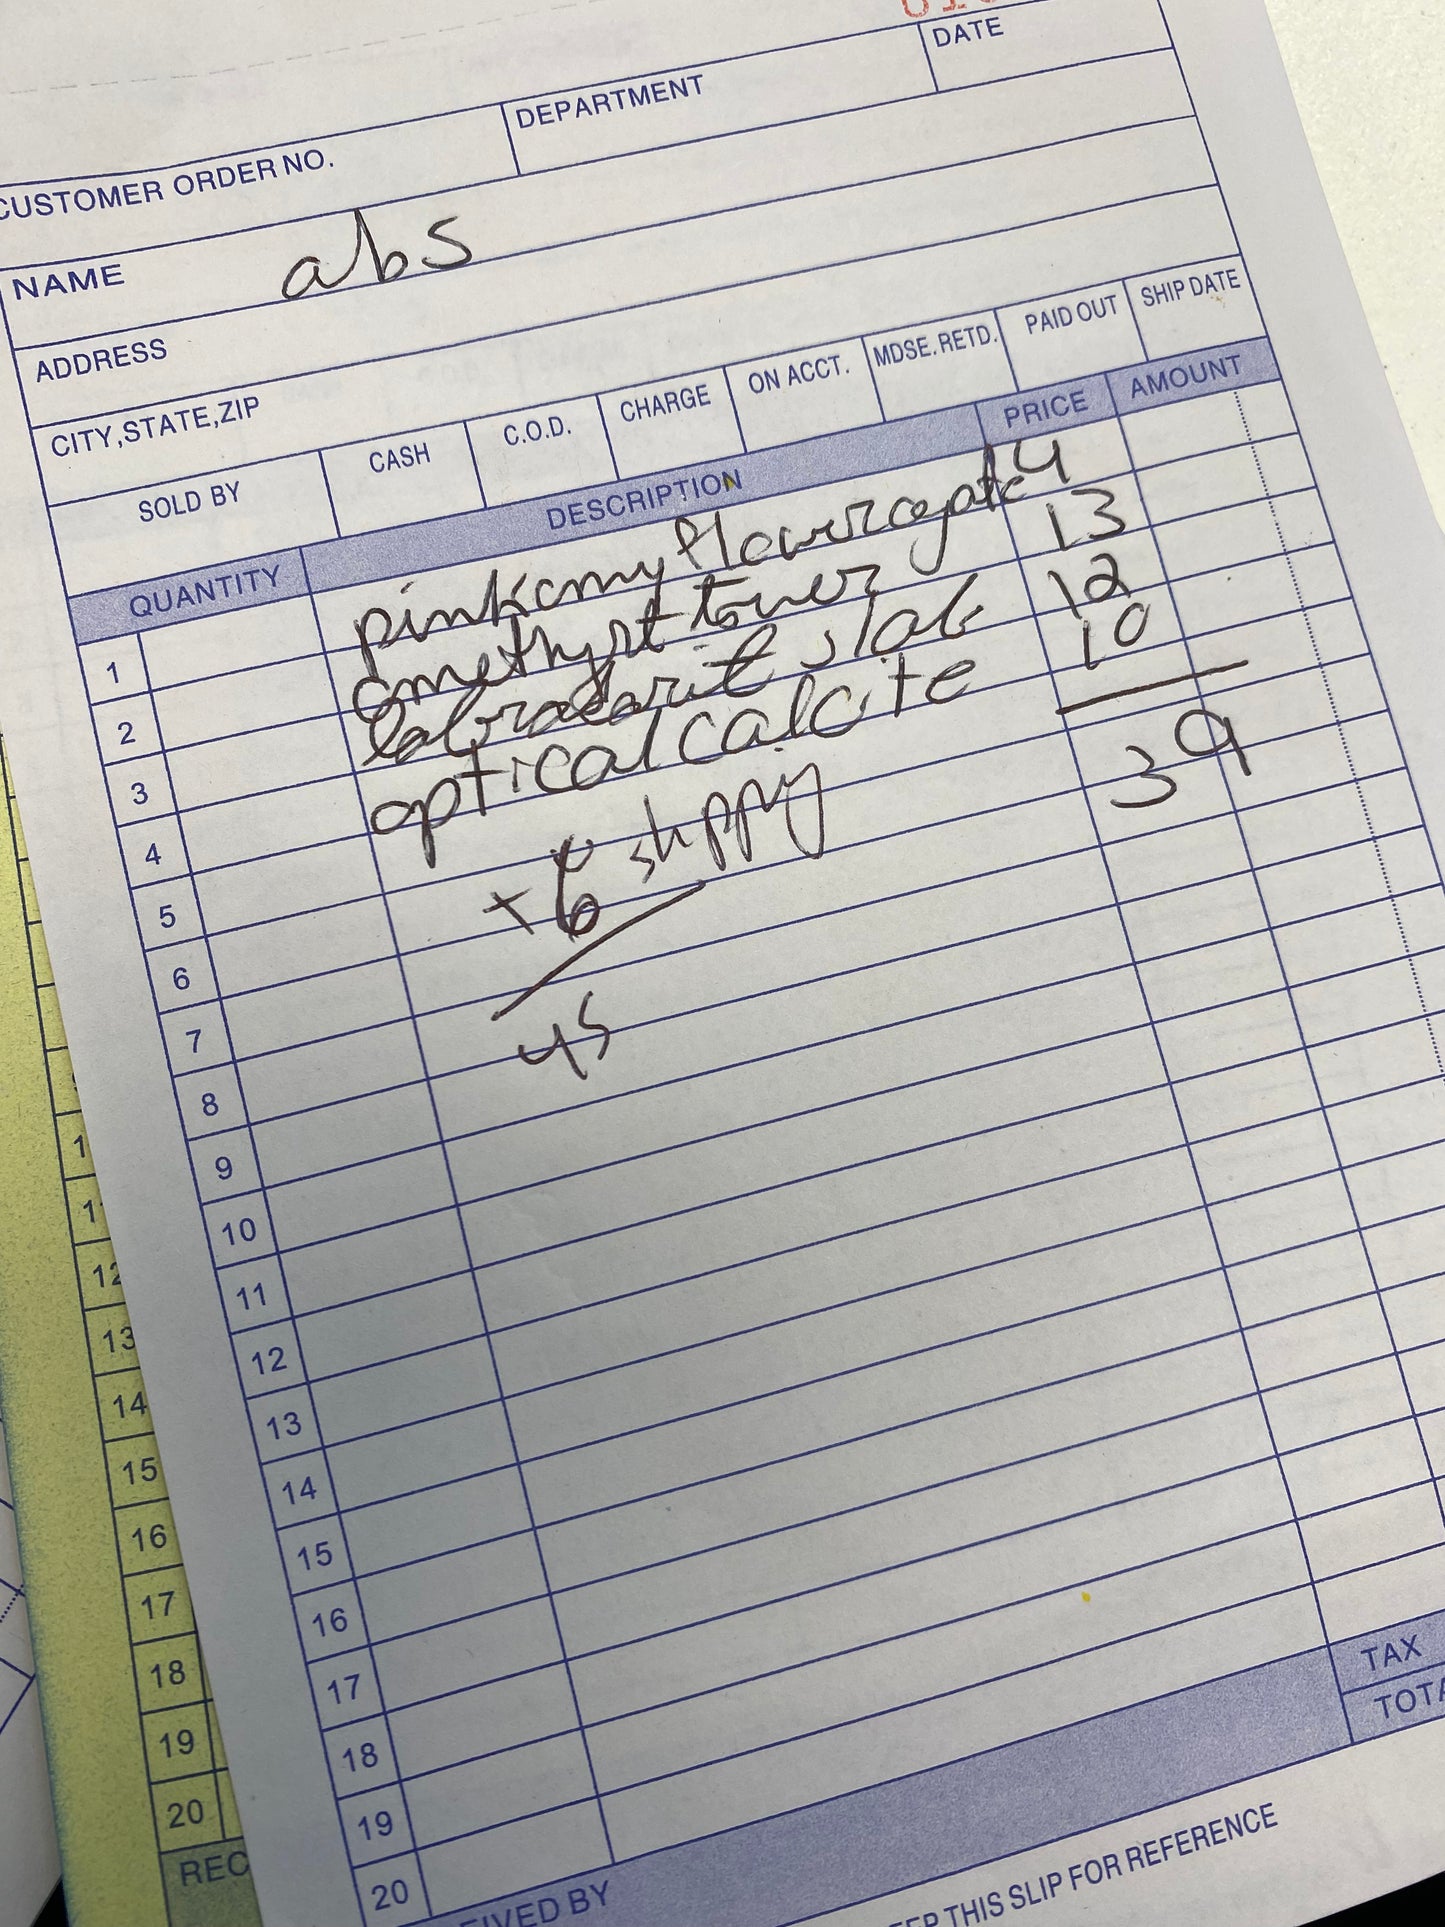 DATE
DEPARTMENT
CUSTOMER ORDER NO.
NAME abs
ADDRESS
CITY,STATE,ZIP
SOLD BY CASH C.O.D. CHARGE ON ACCT. MDSE. RETD. PAID OUT SHIP DATE
QUANTITY DESCRIPTION PRICE AMOUNT
1 pink amy flower agate 4
2 amethyst tower 13
3 labradorit slab 12
4 optical calcite 10
39
5 + 6 shppny
6
7 45
8
9
10
11
12
13
14
15
16
17
18
19
20
TAX
TOTA
EIVED BY
EEP THIS SLIP FOR REFERENCE
1
1
12
13
14
15
16
17
18
19
20
REC